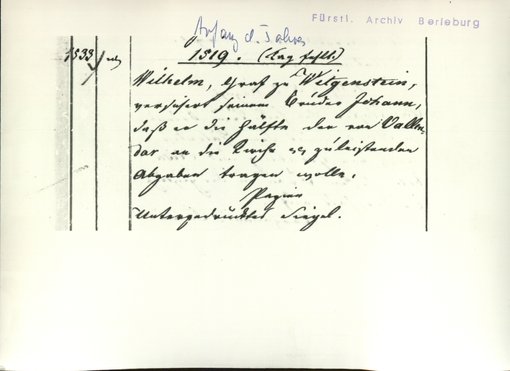 Anfang d. Jahres
Fürstl. Archiv Berleburg
1533
1519. (Tag fehlt.)
Wilhelm, Graf zu Witgenstein,
versichert seinem Bruder Johann,
daß er die Hälfte der von Vallen-
dar an die Kirche zuleistenden
Abgaben tragen wolle.
Papier
Untergedrücktes Siegel.